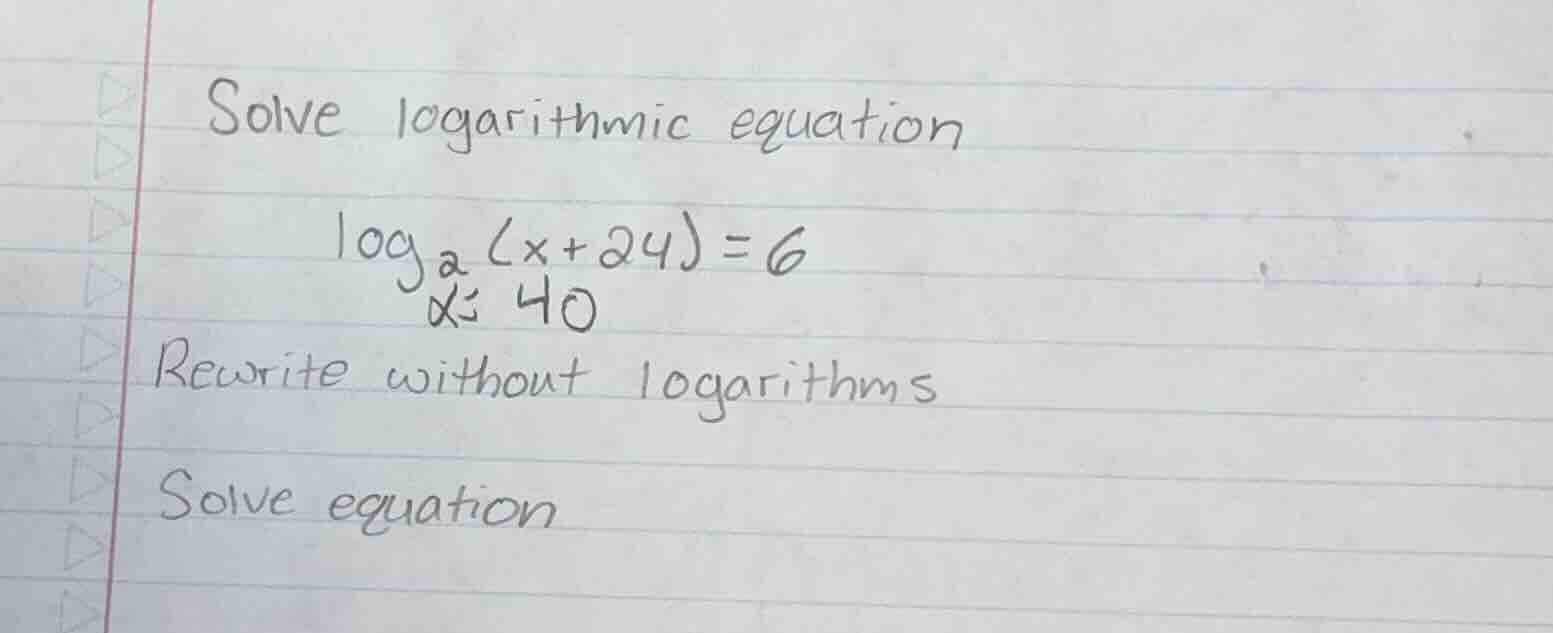 Solve logarithmic equation
log₂ (x+24) = 6
x= 40
Rewrite without logarithms
Solve equation